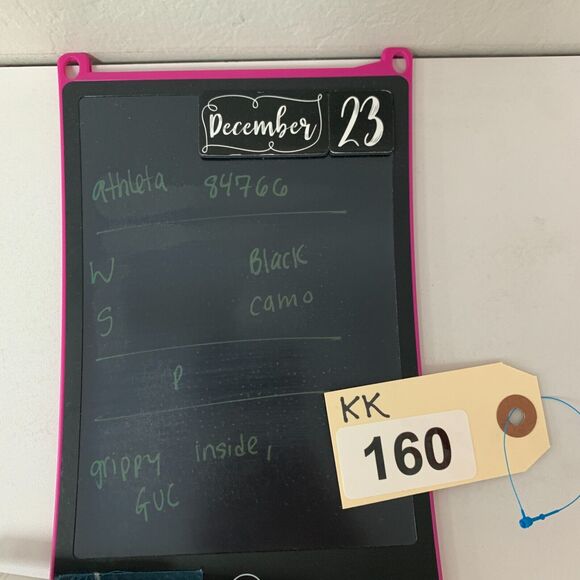 December 23
athleta 84766
W Black
S camo
P
KK
160
grippy inside,
GUC